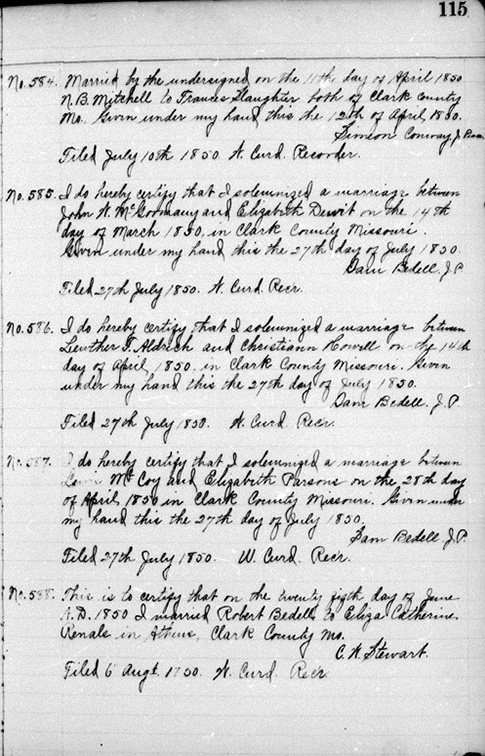 115
No. 584. Married by the undersigned on the 11th day of April 1850
N. B. Mitchell to Frances Slaughter both of Clark County
Mo. Given under my hand this the 12th of April 1850.
Simeon Conway J.
Filed July 10th 1850. W. Curd. Recorder.
No. 585. I do hereby certify that I solemnized a marriage between
John W. and Elizabeth on the 14th
day of March 1850, in Clark County Missouri.
Given under my hand this the 27th day of July 1850.
Sam Bedell, J.P.
Filed 27th July 1850. W. Curd. Recr.
No. 586. I do hereby certify that I solemnized a marriage between
Leuther T. Aldrich and Christiann Howell on the 14th
day of April, 1850, in Clark County Missouri. Given
under my hand this the 27th day of July 1850.
Sam Bedell. J.P.
Filed 27th July 1850. W. Curd. Recr.
No. 587. I do hereby certify that I solemnized a marriage between
McCoy and Elizabeth Parsons on the 28th day
of April 1850 in Clark County Missouri. Given under
my hand this the 27th day of July 1850.
Sam Bedell J.P.
Filed 27th July 1850. W. Curd. Recr.
No. 588. This is to certify that on the twenty fifth day of June
A.D. 1850 I married Robert Bedell to Eliza Catherine
Renals in Athens, Clark County Mo.
C. W. Stewart.
Filed 6" Augt. 1850. W. Curd. Recr